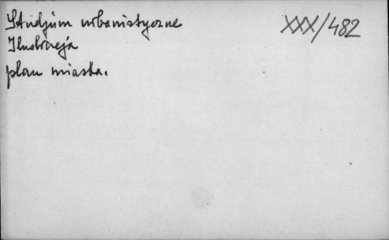 Studjum urbanistyczne
XXX/482
Ilustracja
plan miasta.